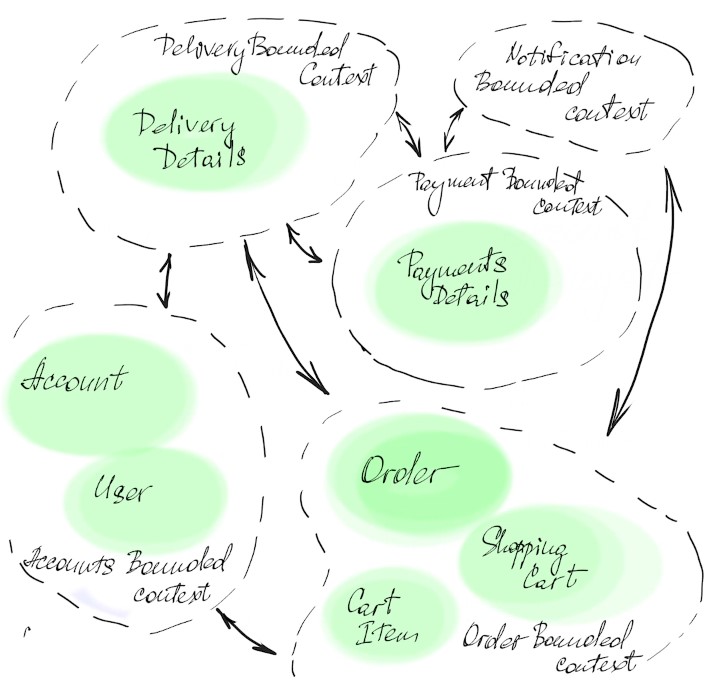 Delivery Bounded
Context
Delivery
Details
Notification
Bounded
context
Payment Bounded
context
Payments
Details
Account
User
Accounts Bounded
context
Order
Shopping
Cart
Cart
Item
Order Bounded
context